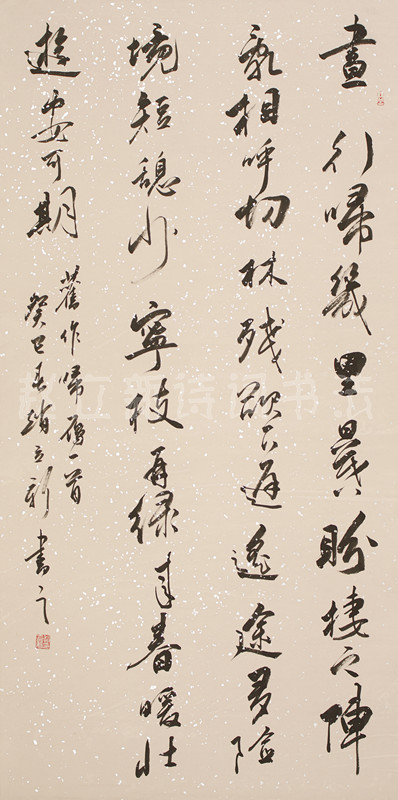 晝行啼幾里暮盼棲之陣
亂相呼切林殘欲下遲遙途多險
境短憩少寧枝再綠春暖壯
遊安可期
舊作歸雁一首
癸巳春趙立新書之
赵立新诗词书法